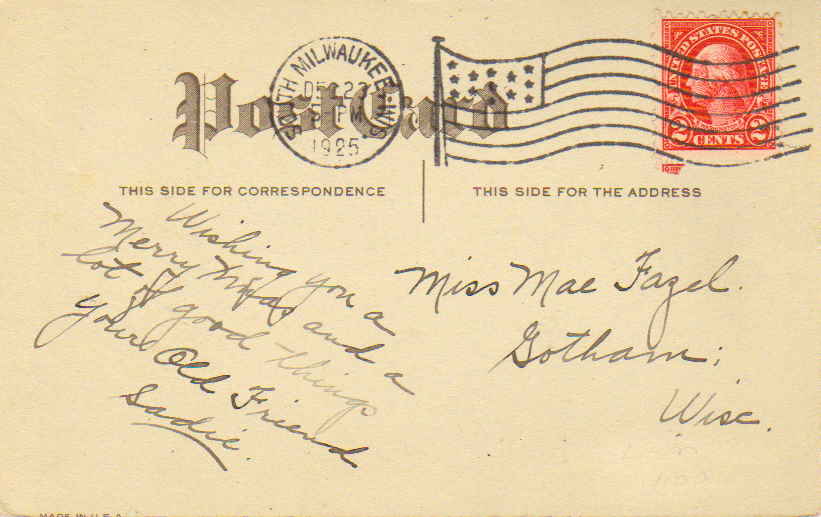 Post Card
SOUTH MILWAUKEE WIS.
DEC 22
PM
1925
UNITED STATES POSTAGE
2 CENTS 2
THIS SIDE FOR CORRESPONDENCE
THIS SIDE FOR THE ADDRESS
Wishing you a
Merry Xmas and a
lot of good things
your Old Friend
Sadie.
Miss Mae Fazel.
Gotham,
Wisc.
MADE IN U.S.A.